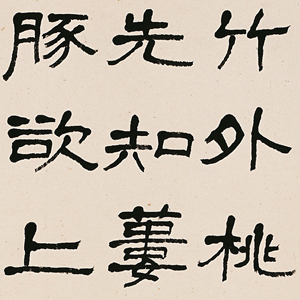 竹外桃
先知蔞
豚欲上